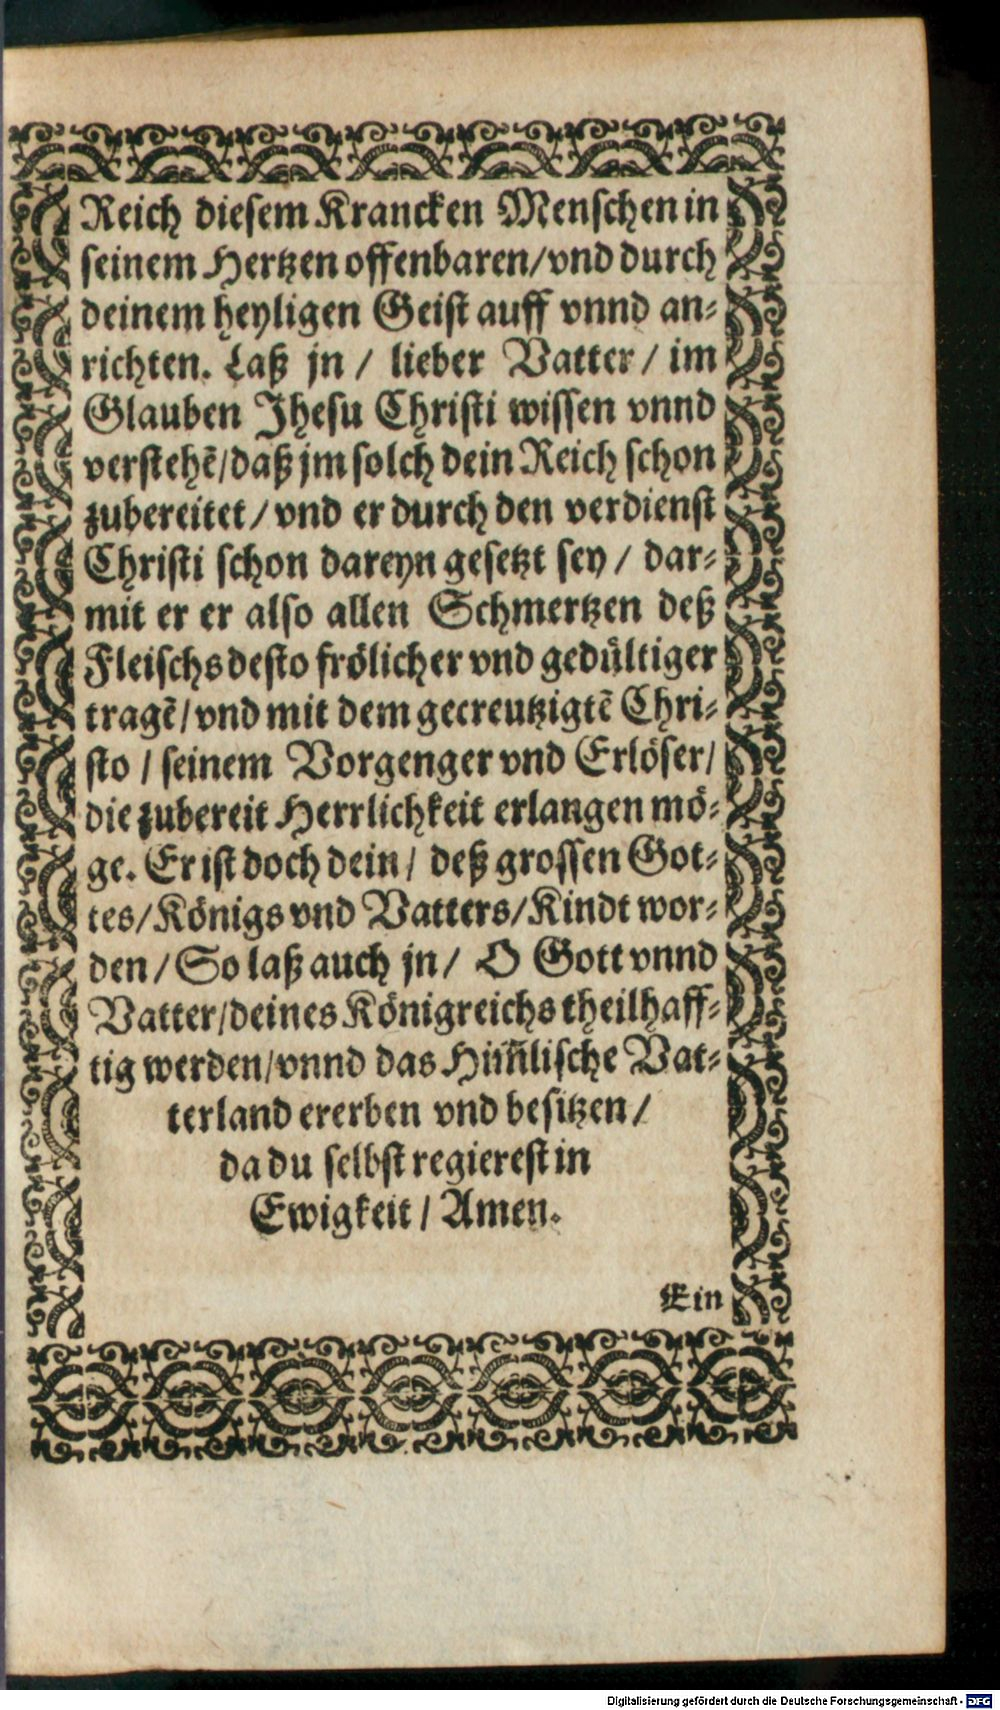 Reich diesem Krancken Menschen in
seinem Hertzen offenbaren/vnd durch
deinem heyligen Geist auff vnnd an⸗
richten. Laß jn / lieber Vatter / im
Glauben Jhesu Christi wissen vnnd
verstehẽ/daß jm solch dein Reich schon
zubereitet/ vnd er durch den verdienst
Christi schon dareyn gesetzt sey / dar⸗
mit er er also allen Schmertzen deß
Fleischs desto frölicher vnd gedültiger
tragẽ/ vnd mit dem gecreutzigtẽ Chri⸗
sto / seinem Vorgenger vnd Erlöser/
die zubereit Herrlichkeit erlangen mö⸗
ge. Er ist doch dein/ deß grossen Got⸗
tes/Königs vnd Vatters/Kindt wor⸗
den/ So laß auch jn/ O Gott vnnd
Vatter/deines Königreichs theilhaff⸗
tig werden/vnnd das Him̃lische Vat⸗
terland ererben vnd besitzen/
da du selbst regierest in
Ewigkeit / Amen.
Ein
Digitalisierung gefördert durch die Deutsche Forschungsgemeinschaft - DFG